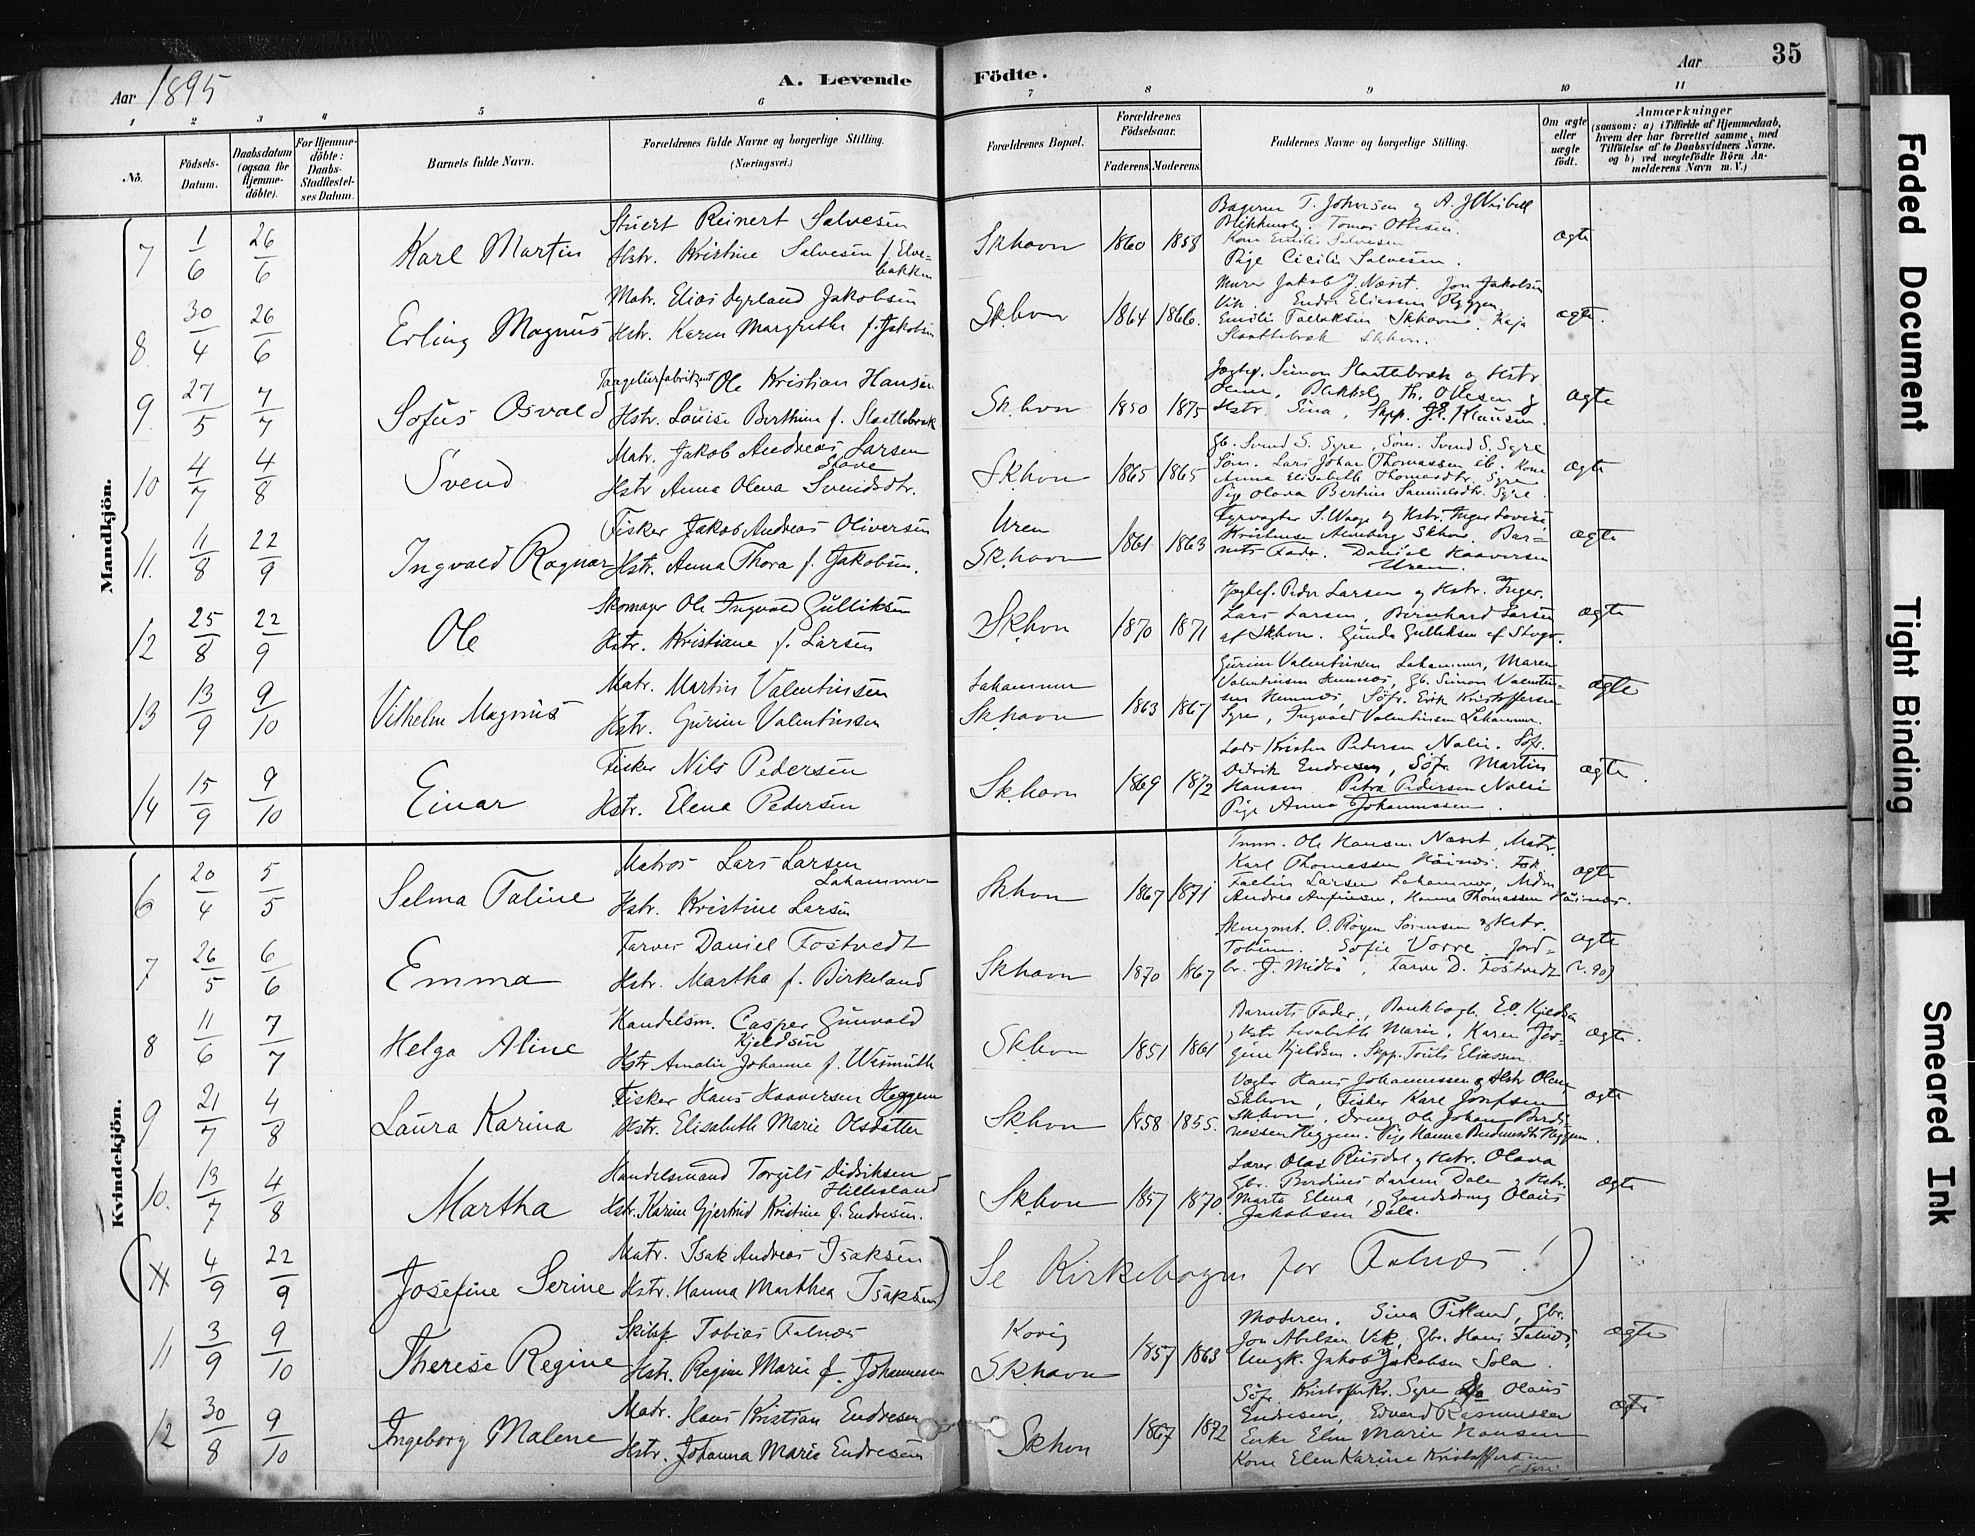 Aar 1895
A. Levende Födte.
Aar
35
1 2 3 4 5 6 7 8 9 10 11
No.
Födsels-Datum.
Daabsdatum (ogsaa for Hjemme-döbte).
For Hjemme-döbte: Daabs-Stadfæstelses Datum.
Barnets fulde Navn.
Forældrenes fulde Navne og borgerlige Stilling. (Næringsvei.)
Forældrenes Bopæl.
Forældrenes Födselsaar.
Faderens. Moderens.
Faddernes Navne og borgerlige Stilling.
Om ægte eller uægte födt.
Anmærkninger
(saasom: a) i Tilfælde af Hjemmedaab, hvem der har forrettet samme, med Tilföielse af to Daabsvidners Navne, og b) ved uægtefödte Börn Anmelderens Navn m. V.)
Mandkjön.
7 1/6 26/6 Karl Martin
Stuert Reinert Salvesen
Hstr. Kristine Salvesen f. Elvebakken
Skhavn 1860 1858
T. Johnsen og A. J.
Kone Emilie Salvesen
Pige Cicilie Salvesen.
ægte
8 30/4 26/6 Erling Magnus
Matr. Elias Jakobsen
Hstr. Karen Margrethe f. Jakobsen
Skhavn 1864 1866.
Jakob J. Næset. Jon Jakobsen
Vik. Endre Eliassen Ryggen
Emilie Skhavn. Kaja
Slaattebræk Skhvn.
ægte.
9. 27/5 7/7 Sofus Osvald
Ole Kristian Hansen
Hstr. Louise Berthine f. Slaattebræk
Sk.hvn 1850 1875
Simon Slaattebræk og Hstr
Th. Ollesen og
Hstr. Sina, Skpp. Klausen.
ægte
10 4/7 4/8 Svend
Matr. Jakob Andreas Larsen Stave
Hstr Anna Olena Svendsdtr.
Skhvn 1865 1865
Gb. Svend S. Syre, Söm. Svend S. Syre
Söm. Lars Johan Thomassen ib. Kone
Anna Elisabeth Thomasdtr. Syre
Pige Olava Bertine Samuelsdtr. Syre.
ægte
11. 11/8 22/9 Ingvald Ragnar
Fisker Jakob Andreas Oliversen
Hstr. Anna Thora f. Jakobsen.
Uren
Skhavn 1861 1863
Fyrvogter S. Waage og Hstr. Inger Lovise,
Skhvn. Barnets Fader. Daniel Haaversen
Uren.
ægte
12 25/8 22/9 Ole
Skomager Ole Ingvald Gulliksen
Hstr. Kristiane f. Larsen
Skhvn 1870 1871
Peder Larsen og Hstr. Inger.
Lars Larsen, Bernhard Larsen
af Skhvn. Gunda Gulliksen
ægte
13 13/9 9/10 Vilhelm Magnus
Matr. Martin Valentinsen
Hstr. Gurine Valentinsen
Lahammer
Skhavn 1863 1867
Gurine Valentinsen Lahammer, Maren
Valentinsen Hemnæs, Gb. Simon Valentinsen Hemnæs, Söfr. Erik Kristoffersen
Syre, Ingvald Valentinsen Lahammer.
ægte
14 15/9 9/10 Einar
Fisker Nils Pedersen
Hstr. Elena Pedersen
Skhavn 1869 1872
Lods Kristen Pedersen Nalei. Söfr.
Didrik Endresen, Söfr. Martin
Hansen Petra Pedersen Nalei
Pige Anna Johannessen.
ægte.
Kvindekjön.
6 20/4 5/5 Selma Faline
Matros Lars Larsen Lahammer
Hstr. Kristine Larsen
Skhvn 1867 1871
Ole Hansen Næset, Matr.
Karl Thomassen Höines.
Larsen Lahammer,
Andrea Anfinsen, Hanna Thomassen Höines.
ægte
7 26/5 6/6 Emma
Farver Daniel Fostvedt
Hstr. Martha f. Birkeland
Skhavn 1870 1867
O. Röyer Sörensen og Hstr.
Sofie Vorre
J. Midbö, Farver D. Fostvedt
ægte
8 11/6 7/7 Helga Aline
Handelsm. Casper Gunvald Kjeldsen
Hstr Amalie Johanne f. Wesmuth
Skhvn 1851 1861
Barnets Fader, E. Kjeldsen
og Hstr Lisabeth Marie, Karen Jörgine Kjeldsen. Skpp. Eliassen.
ægte.
9 21/7 4/8 Laura Karina
Fisker Hans Haaversen Heggem
Hstr. Elisabeth Marie Olsdatter
Skhvn 1858 1855.
Vogter Hans Johannessen og Hstr Olene
Skhvn, Fisker Karl Josefsen
Skhvn, Dreng Ole Johan
Heggem. Pige Hanna Heggem.
ægte
10. 13/7 4/8 Martha
Handelsmand Torgils Didriksen Hillesland
Hstr. Karine Gjertrud Kristine f. Endresen.
Skhvn 1857 1870.
Lærer Olai Riisdal og Hstr. Olava
Gbr. Berdines Larsen Dale og Hstr.
Marta Elena, Olaus
Jakobsen Dale.
ægte
(11 4/9 22/9 Josefine Serine
Matr. Isak Andreas Isaksen
Hstr. Hanna Marthea Isaksen)
Se Kirkebogen for Falnæs!)
11 3/9 9/10 Therese Regine
Tobias Falnæs
Hstr. Regine Marie f. Johannessen
Kovig
Skhavn 1857 1863
Moderen. Sina Fitland, Gbr.
Jon Abelsen Vik, Gbr. Hans Falnæs,
Ungk. Jakob Jakobsen Sola.
ægte
12 30/8 9/10 Ingeborg Malene
Matr. Hans Kristian Endresen
Hstr. Johanna Marie Endresen
Skhvn 1867 1872
Söfr Kristoffer Kr. Syre Olaus
Endresen, Edvard Rasmussen
Enke Elen Marie Hansen
Kone Elen Karine Kristoffersen
Syre
ægte
Faded Document
Tight Binding
Smeared Ink